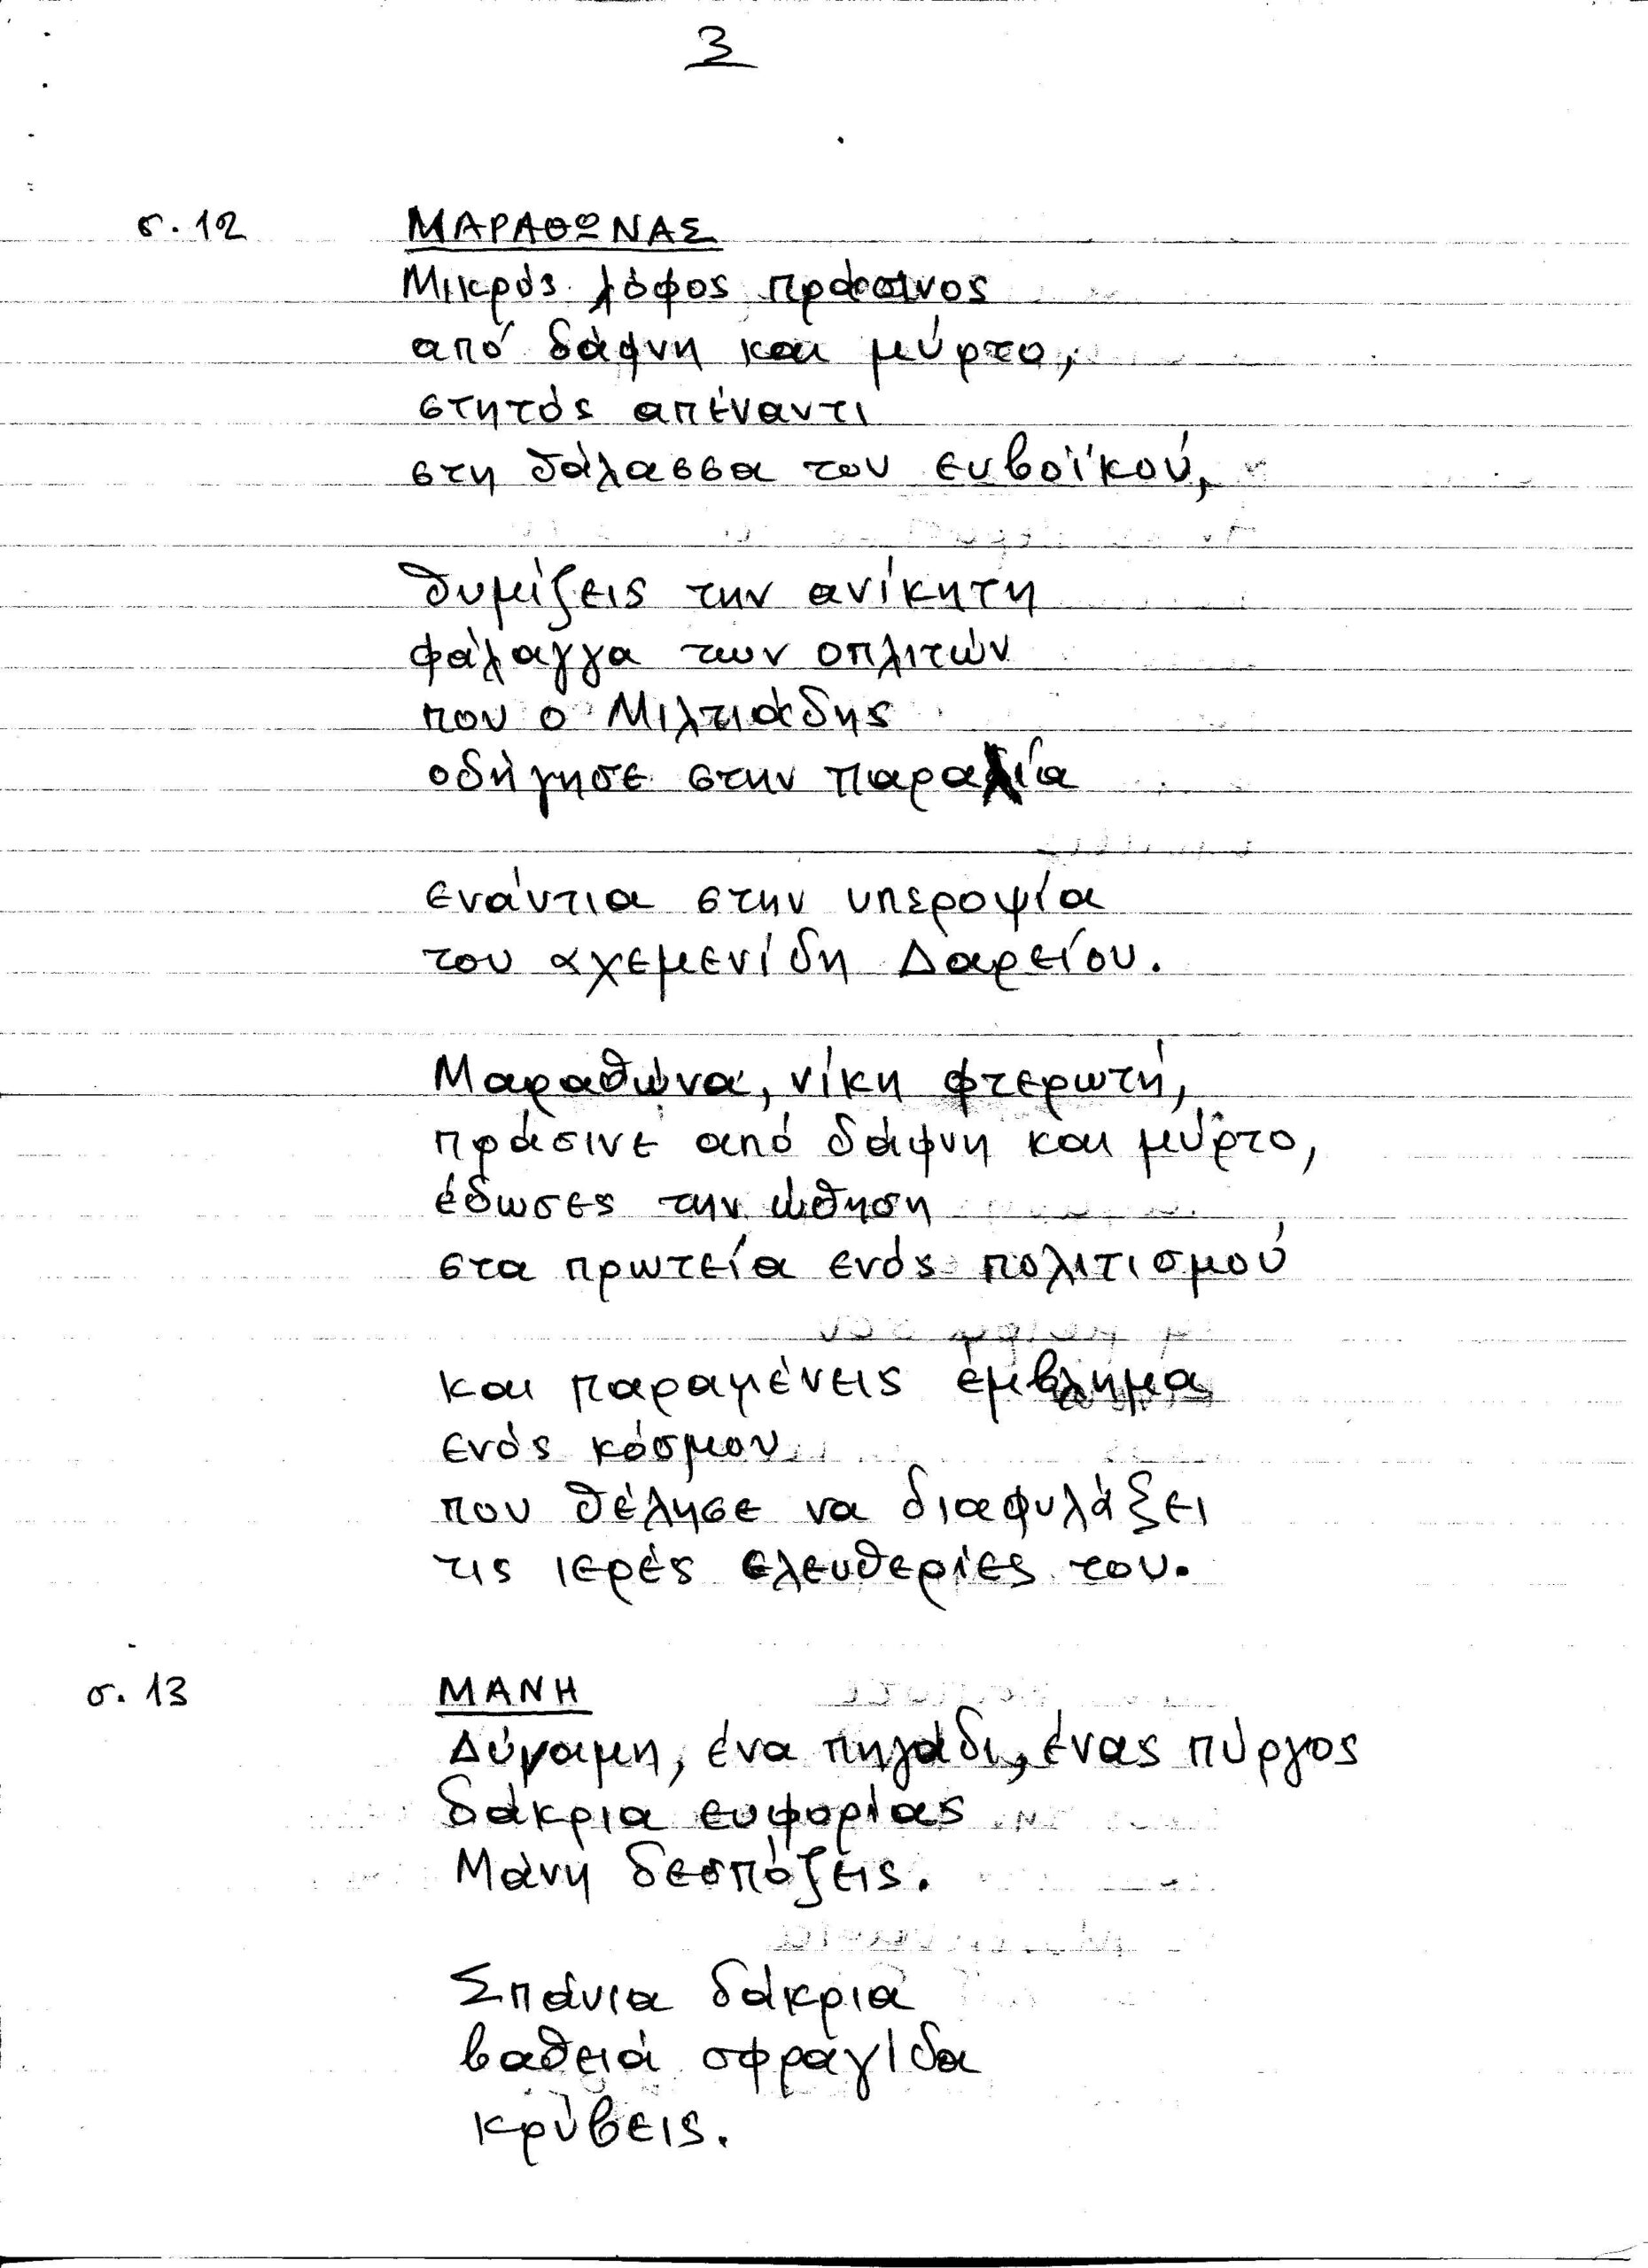 3
σ. 12 ΜΑΡΑΘΩΝΑΣ
Μικρός λόφος πράσινος
από δάφνη και μύρτο,
στητός απέναντι
στη θάλασσα του ευβοϊκού,
θυμίζεις την ανίκητη
φάλαγγα των οπλιτών
που ο Μιλτιάδης
οδήγησε στην παραλία
ενάντια στην υπεροψία
του αχεμενίδη Δαρείου.
Μαραθώνα, νίκη φτερωτή,
πράσινε από δάφνη και μύρτο,
έδωσες την ώθηση
στα πρωτεία ενός πολιτισμού
και παραμένεις έμβλημα
ενός κόσμου
που θέλησε να διαφυλάξει
τις ιερές ελευθερίες του.
σ. 13 ΜΑΝΗ
Δύναμη, ένα πηγάδι, ένας πύργος
δάκρια ευφορίας
Μάνη δεσπόζεις.
Σπάνια δάκρια
βαθειά σφραγίδα
κρύβεις.